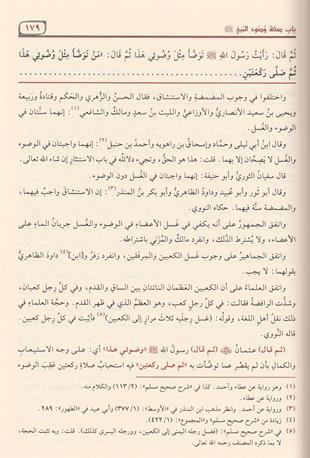 باب صفة وضوء النبي ﷺ
١٧٩
ثُمَّ قَالَ: رَأَيْتُ رَسُولَ اللهِ ﷺ تَوَضَّأَ مِثْلَ وُضُوئِي هَذَا ثُمَّ قَالَ: «مَنْ تَوَضَّأَ مِثْلَ وُضُوئِي هَذَا
ثُمَّ صَلَّى رَكْعَتَيْنِ............................
واختلفوا في وجوب المضمضة والاستنشاق، فقال الحسنُ والزُّهري والحَكَم وقتادة وربيعة
ويحيى بنُ سعيد الأنصاريُّ والأوزاعي والليثُ بنُ سعدٍ ومالكٌ والشافعي(١): إنهما سنَّتان في
الوضوء والغُسل.
وقال ابنُ أبي ليلى وحمَّاد وإسحاقُ بن راهويه وأحمدُ بن حنبل(٢): إنهما واجبتان في الوضوء
والغُسل لا يَصِحَّان إلا بهما. قلت: هذا هو الحقُّ، وتجيء دلائلُه في باب الاستنثار إن شاء الله تعالى.
قال سفيانُ الثوريُّ وأبو حنيفة: إنهما واجبتان في الغُسل دون الوضوء.
وقال أبو ثَور وأبو عُبيد وداودُ الظاهريُّ وأبو بكر بنُ المنذر(٣): إن الاستنشاق واجبٌ فيهما،
والمضمضة سنَّة فيهما. حكاه النووي.
واتفق الجمهورُ على أنه يكفي في غَسل الأعضاء في الوضوء والغُسل جريانُ الماءِ على
الأعضاء، ولا يُشترط الدَّلك، وانفرد مالكٌ والمُزَني باشتراطه.
واتفق الجماهيرُ على وجوب غَسل الكعبين والمِرفَقين، وانفرد زفرُ و[ابن](٤) داودَ الظاهريُّ
بقولهما: لا يجب.
واتفق العلماءُ على أن الكعبين العَظمان الناتئان بين الساق والقدم، وفي كلِّ رِجل كعبان،
وشذَّت الرافضةُ فقالت: في كلِّ رِجل كعب، وهو العظمُ الذي في ظهر القدم. وحجَّة العلماءِ في
ذلك نقلُ أهلِ اللغة، وقولُه: (غسل رِجلَيه ثلاثَ مرارٍ إلى الكعبين)(٥) فأثبت في كلِّ رِجل كعبين.
قاله النَّووي.
(ثم قال) عثمانُ ﷺ (ثم قال) رسول الله ﷺ (وضوئي هذا) أي: على وجه الاستيعابِ
والكمال بأن لم يقصِّر عما توضَّأتُ به «ثم صلى ركعتين» فيه استحبابُ صلاةِ ركعتين عَقِيبَ الوضوء
(١) وهو رواية عن عطاء وأحمد. كذا في «شرح صحيح مسلم» (١١٣/٢) والكلام منه.
(٢) وهو رواية عن عطاء.
(٣) ورواية عن أحمد. وانظر مذهب ابن المنذر في «الأوسط» (٣٧٧/١) وأبي عبيد في «الطهور» ٢٨٩.
(٤) زيادة من «شرح صحيح مسلم» و«المجموع» (٤٢٢/١).
(٥) في «شرح صحيح مسلم»: (فغسل رجله اليمنى إلى الكعبين، ورجله اليسرى كذلك). قلت: وبه تثبت الحجة،
لا بما ذكره المصنف رحمه الله تعالى.